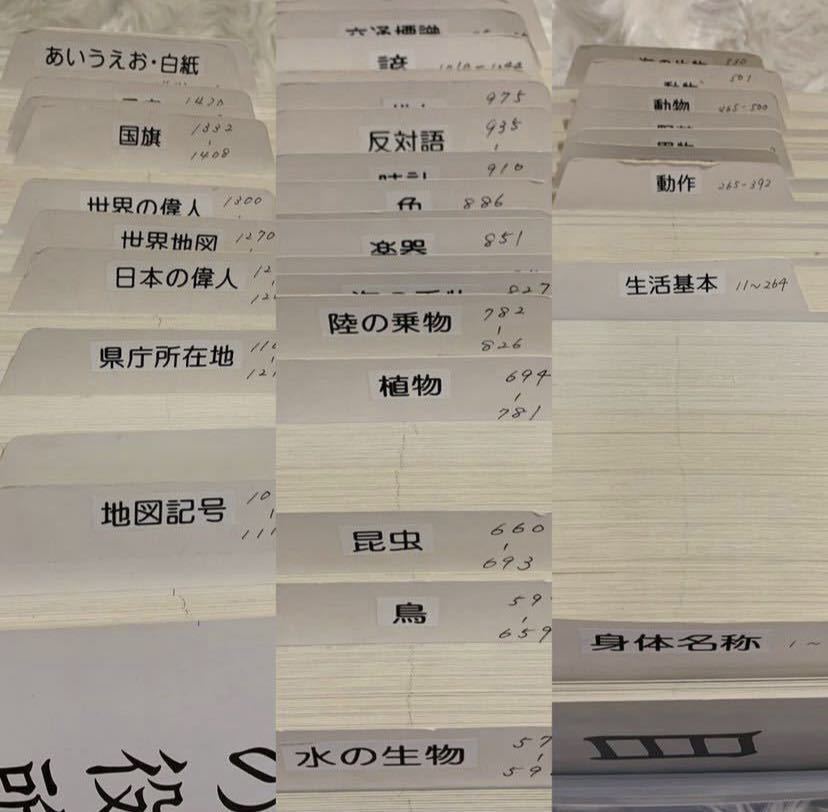 あいうえお・白紙
1420
国旗
1332
1408
世界の偉人
1300
世界地図
1270
日本の偉人
県庁所在地
地図記号
の役所
交通標識
諺
975
反対語
935
時計
910
色
886
楽器
851
827
陸の乗物
782
826
植物
694
781
昆虫
660
693
鳥
659
水の生物
海の生物
501
動物
465-500
動作
265-392
生活基本
11~264
身体名称
1~
目